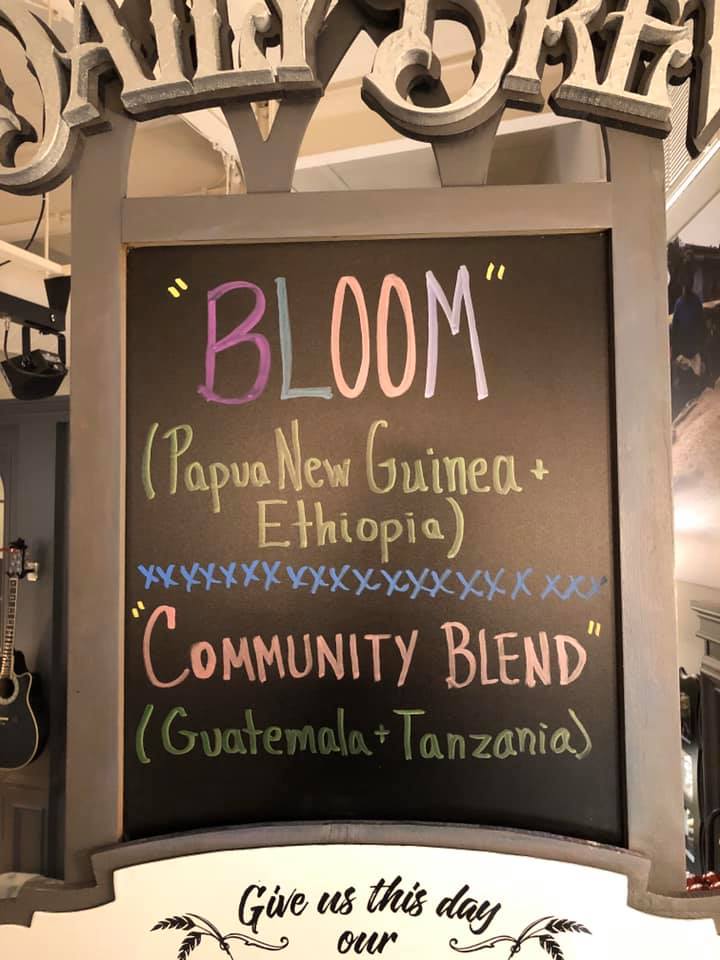 DAILY BREW
"BLOOM"
(Papua New Guinea +
Ethiopia)
xxxxxxxxxxxxxxxxxxxxxx
"COMMUNITY BLEND"
(Guatemala + Tanzania)
Give us this day
our